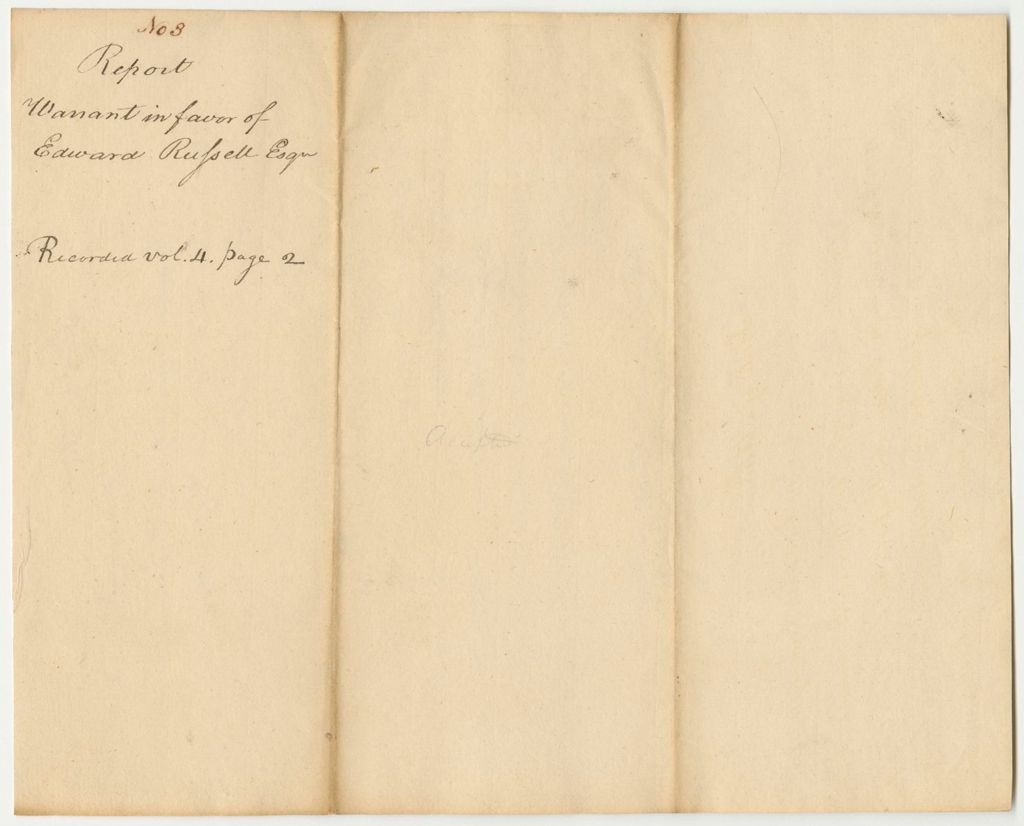 No 3
Report
Warrant in favor of
Edward Russell Esqr
Recorded vol. 4. page 2